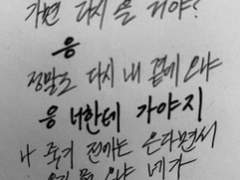 가면 다시 올 거야?
응
정말로 다시 내 곁에 오냐
응 너한테 가야지
나 죽기 전에는 온다면서
오냐 네가